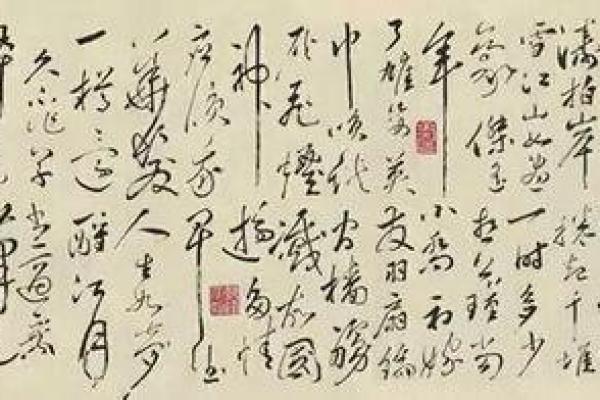 濤拍岸捲起千堆
雪江山如畫一時多少
豪傑遙想公瑾當
年小喬初嫁
了雄姿英發羽扇綸
巾笑談間檣艣
灰飛煙滅故國
神遊多情
應笑我早生
華髮人生如夢
一樽還酹江月
久不作草書適乘